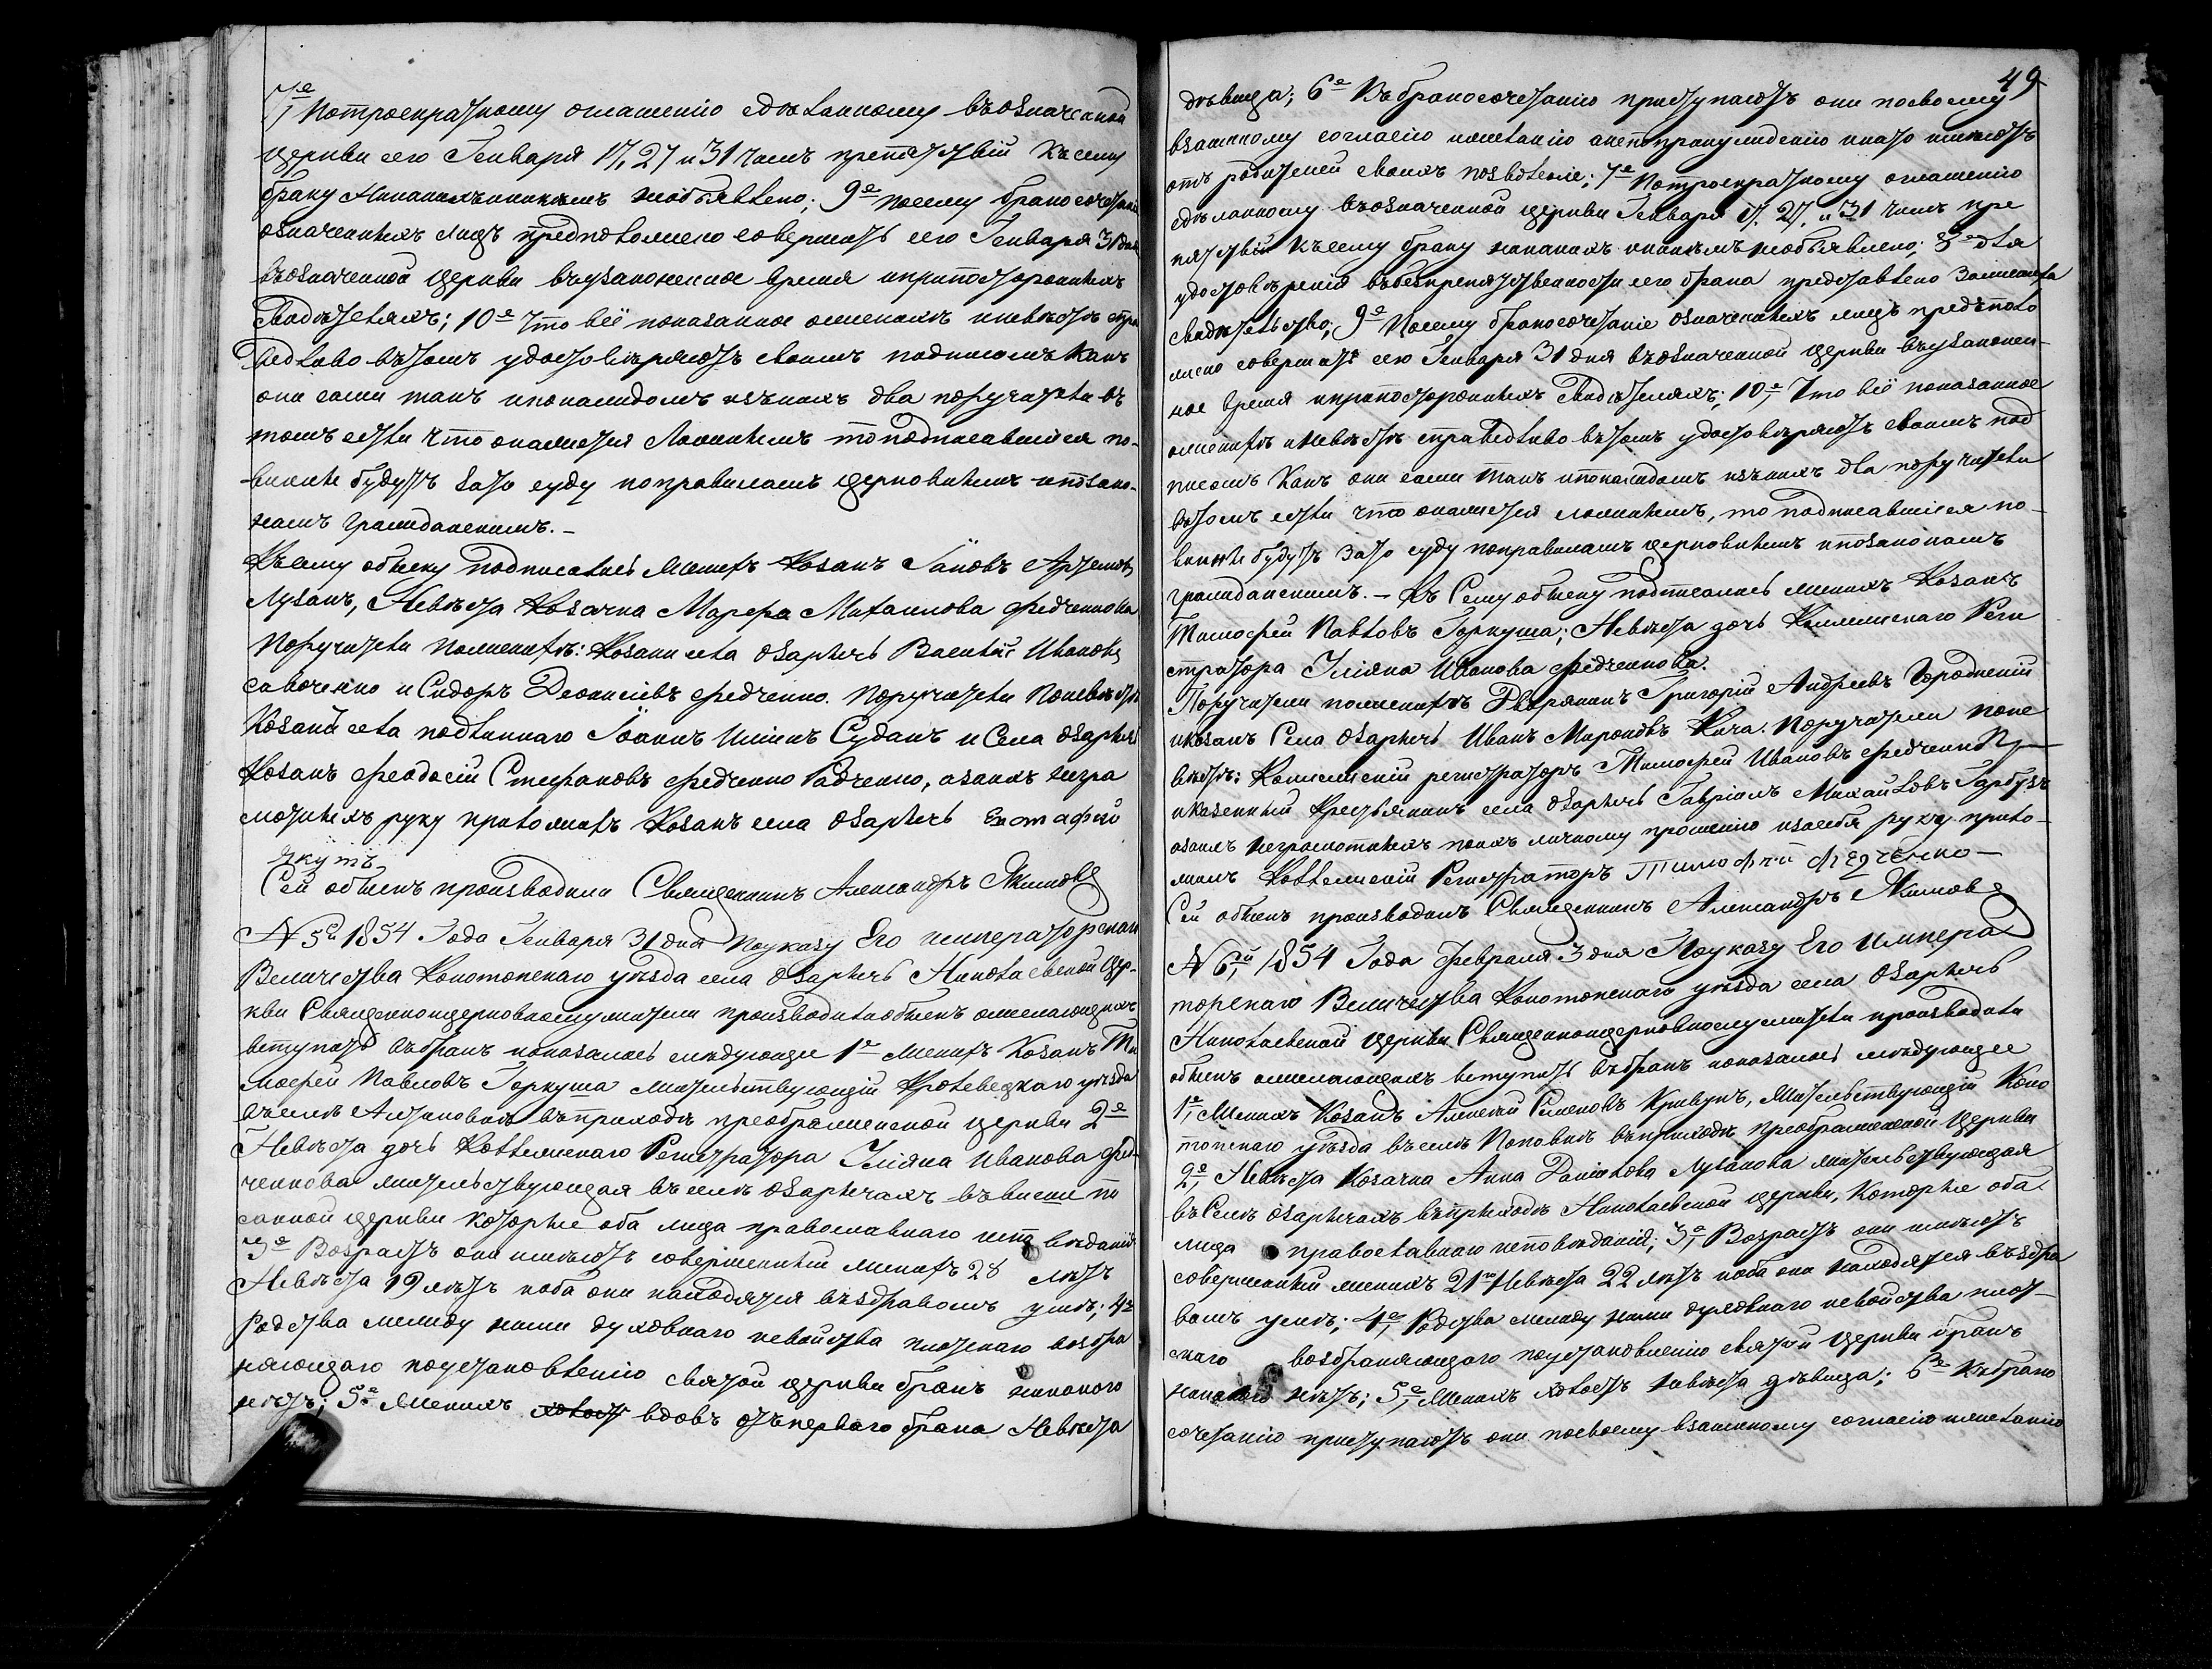 7е Потроекратному оглашенію сдѣланному въозначенной
церкви сего Генваря 17, 27 и 31 чиселъ препятствій къ сему
браку никакихъ никѣмъ необъявлено; 9е посему бракосочетаніе
означенныхъ лицъ предположено совершить сего Генваря 31 дня
въозначенной церкви въузаконенное время и припостороннихъ
свидѣтеляхъ; 10е Что всё показанное о женихѣ и невѣстѣ спра
ведливо вътомъ удостовѣряютъ своимъ подписомъ какъ
они сами такъ и по каждомъ изъ нихъ два поручители въ
томъ если что окажется ложнымъ то подписавшіися по-
винны будутъ зато суду по правиламъ церковнымъ и по зако-
намъ гражданскимъ. –
Къ сему обыску подписались женихъ козакъ Іаковъ Артемовъ
Лузанъ, Невѣста козачка Марфа Михаилова Федченкова
Поручители по женихѣ: козаки села Озаричь Василій Ивановъ
Савченко и Сидоръ Деонисіевъ Федченко. Поручители по невѣстѣ
Козаки села подлипнаго Іоаннъ Суданъ и Села Озаричь
Козакъ Феодосій Стефановъ Федченко Радченко, а за нихъ негра
мотныхъ руку приложилъ Козакъ села Озаричь Евстафій
Якутъ
Сей обыскъ производили Священникъ Александръ Якимовъ
№ 5й 1854 Года Генваря 31 дня По указу Его императорскаго
Величества Конотопскаго уѣзда села Озаричь Николаевской Цер-
кви Священноцерковнослужители производили обыскъ о желающихъ
вступить въ бракъ и оказалось слѣдующее 1е Женихъ Козакъ Ти
мофей Павловъ Горкуша жительствующій Кролевецкаго уѣзда
въ селѣ Алтыновкѣ въ приходѣ преображенской церкви 2е
Невѣста дочь Коллежскаго Регистратора Іуліяна Иванова Фед-
ченкова жительствующая въ селѣ Озаричахъ въ вышепи
санной церкви которые оба лица православнаго исповѣданія
3е Возрастъ они имѣютъ совершенный женихъ 28 лѣтъ
Невѣста 19 лѣтъ и оба они находятся въ здравомъ умѣ; 4е
Родства между ними духовнаго и свойства плотскаго возбра
няющаго по установленію святой церкви бракъ никакого
нѣтъ; 5е Женихъ холостъ вдовъ отъ перваго брака Невѣста
49
дѣвица; 6е Къ бракосочетанію приступаютъ они по своему
взаимному согласію и желанію а не по принужденію и на то имѣютъ
отъ родителей своихъ позволеніе; 7е По троекратному оглашенію
сдѣланному въ означенной церкви Генваря 17, 27, и 31 чиселъ пре
пятствій къ сему браку никакихъ никѣмъ необъявлено; 8е для
удостовѣренія въ безпрепятственности сего брака представлено
свидѣтельство; 9е Посему бракосочетаніе означенныхъ лицъ предполо
жено совершить сего Генваря 31 дня въ означенной церкви въ узаконен-
ное время и припостороннихъ свидѣтеляхъ; 10е Что всё показанное
о женихѣ и невѣстѣ справедливо вътомъ удостовѣряютъ своимъ под
писомъ какъ они сами такъ и по каждомъ изъ нихъ два поручители
вътомъ если что окажется ложнымъ, то подписавшіися по-
винны будутъ зато суду по правиламъ церковнымъ и по законамъ
гражданскимъ. – Къ Сему обыску подписались женихъ Козакъ
Тимофей Павловъ Горкуша; Невѣста дочь Коллежскаго Реги
стратора Іуліяна Иванова Федченкова.
Поручители по женихѣ Дворянинъ Григорій Андреевъ Городнскій
и козакъ Села Озаричь Иванъ Мироновъ Кича. Поручители по не
вѣстѣ: Коллежскій регистраторъ Тимофей Ивановъ Федченко
и казенный крестьянинъ села Озаричь Гавріилъ Михайловъ Гарбузъ
а за нихъ неграмотныхъ по ихъ личному прошенію и за себя руку прило-
жилъ Коллежскій Регистраторъ Тимофей Федченко –
Сей обыскъ производилъ Священникъ Александръ Якимовъ
№ 6й 1854 Года Февраля 3 дня По указу Его Импера
торскаго Величества Конотопскаго уѣзда села Озаричь
Николаевской церкви Священноцерковнослужители производили
обыскъ о желающихъ вступить въ бракъ и оказалось слѣдующее
1е Женихъ козакъ Алексій Симоновъ Кривунъ, жительствующій Коно
топскаго уѣзда въ селѣ Поповкѣ въ приходѣ преображенской церкви
2е Невѣста козачка Анна Данилова Лузанова жительствующая
въ Селѣ Озаричахъ въ приходѣ Николаевской церкви, которые оба
лица православнаго исповѣданія; 3е Возрастъ они имѣютъ
совершенный женихъ 21го Невѣста 22 лѣтъ и оба они находятся въ здра
вомъ умѣ; 4е Родства между ними духовнаго и свойства плот-
скаго возбраняющаго по установленію святой церкви бракъ
никакого нѣтъ; 5е Женихъ холостъ невѣста дѣвица; 6е Къ брако
сочетанію приступаютъ они по своему взаимному согласію и желанію